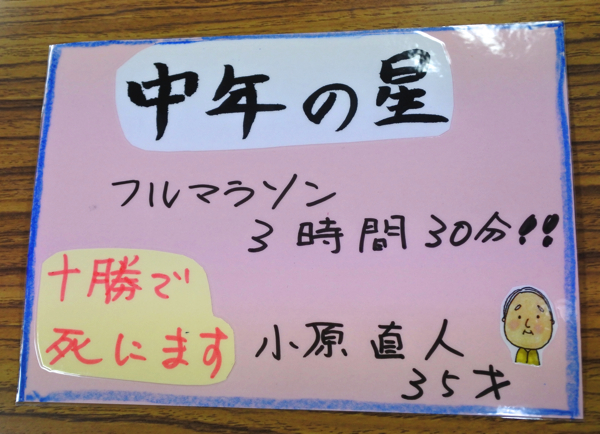 中年の星
フルマラソン
3時間30分!!
十勝で
死にます
小原直人
35才